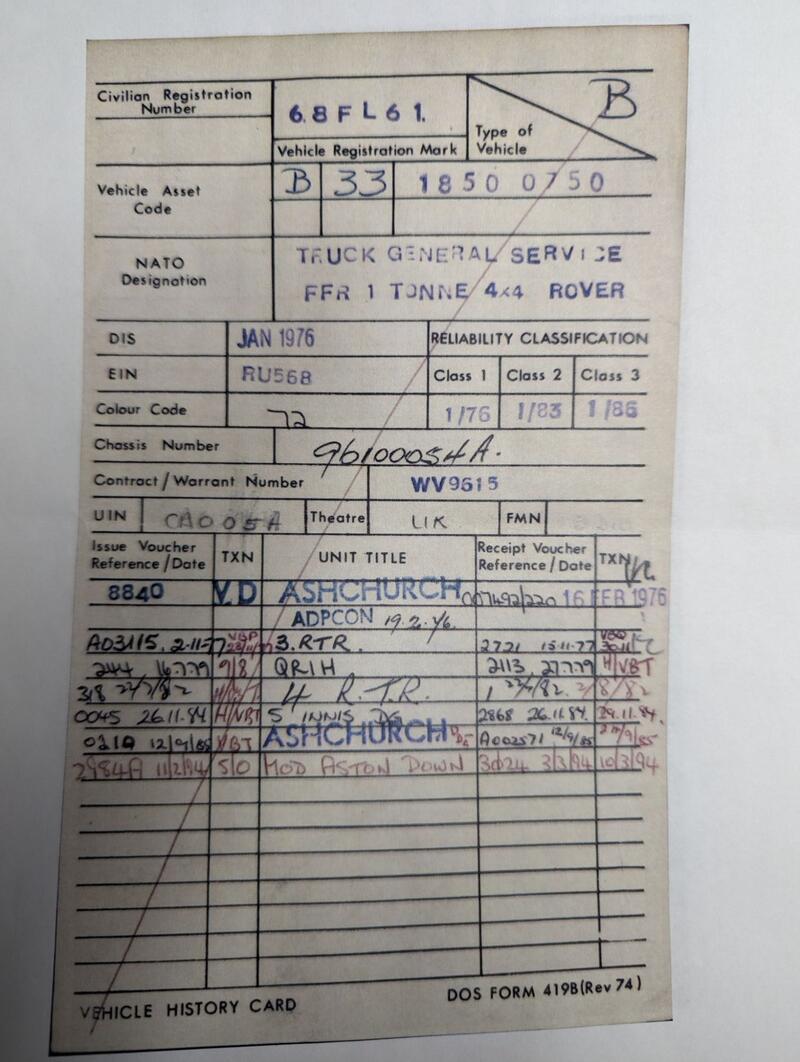 Civilian Registration Number
68FL61. B
Vehicle Registration Mark Type of Vehicle
Vehicle Asset Code B 33 1850 0750
NATO Designation TRUCK GENERAL SERVICE
FFR 1 TONNE 4x4 ROVER
DIS JAN 1976 RELIABILITY CLASSIFICATION
EIN RU568 Class 1 Class 2 Class 3
Colour Code 72 1/76 1/83 1/86
Chassis Number 96100054A.
Contract/Warrant Number WV9615
UIN CA0005A Theatre UK FMN
Issue Voucher Reference/Date TXN UNIT TITLE Receipt Voucher Reference/Date TXN
8840 V.D ASHCHURCH 007492/220 16 FEB 1976
ADPCON 19.2.76.
A03115. 2-11-77 3.RTR. 2721 15-11-77
2444 16.7.79 9/8 QRIH 2113 27.7.79 H/VBT
318 22/7/82 4 R.T.R. 1 22/7/82. 2/8/82
0045 26.11.84 H/VBT 5 INNIS DG 2868 26.11.84. 29.11.84.
021A 12/9/85 VBT ASHCHURCH A002571 12/9/85
2984A 11/2/94 S/O MOD ASTON DOWN 3024 3/3/94 10/3/94
VEHICLE HISTORY CARD DOS FORM 419B(Rev 74)